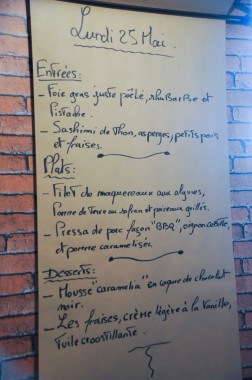 Lundi 25 Mai.
Entrées:
- Foie gras juste poêlé, rhubarbe et
Pistache.
- Sashimi de Thon, asperges, petits pois
et fraises.
Plats:
- Filet de maquereaux aux algues,
Pomme de Terre au safran et poireaux grillés.
- Pressa de porc façon "BBQ", oignon cebette,
et pomme caramélisée.
Desserts:
- Mousse "caramelia" en coque de chocolat
noir.
- Les fraises, crème légère à la Vanille,
Tuile croustillante.